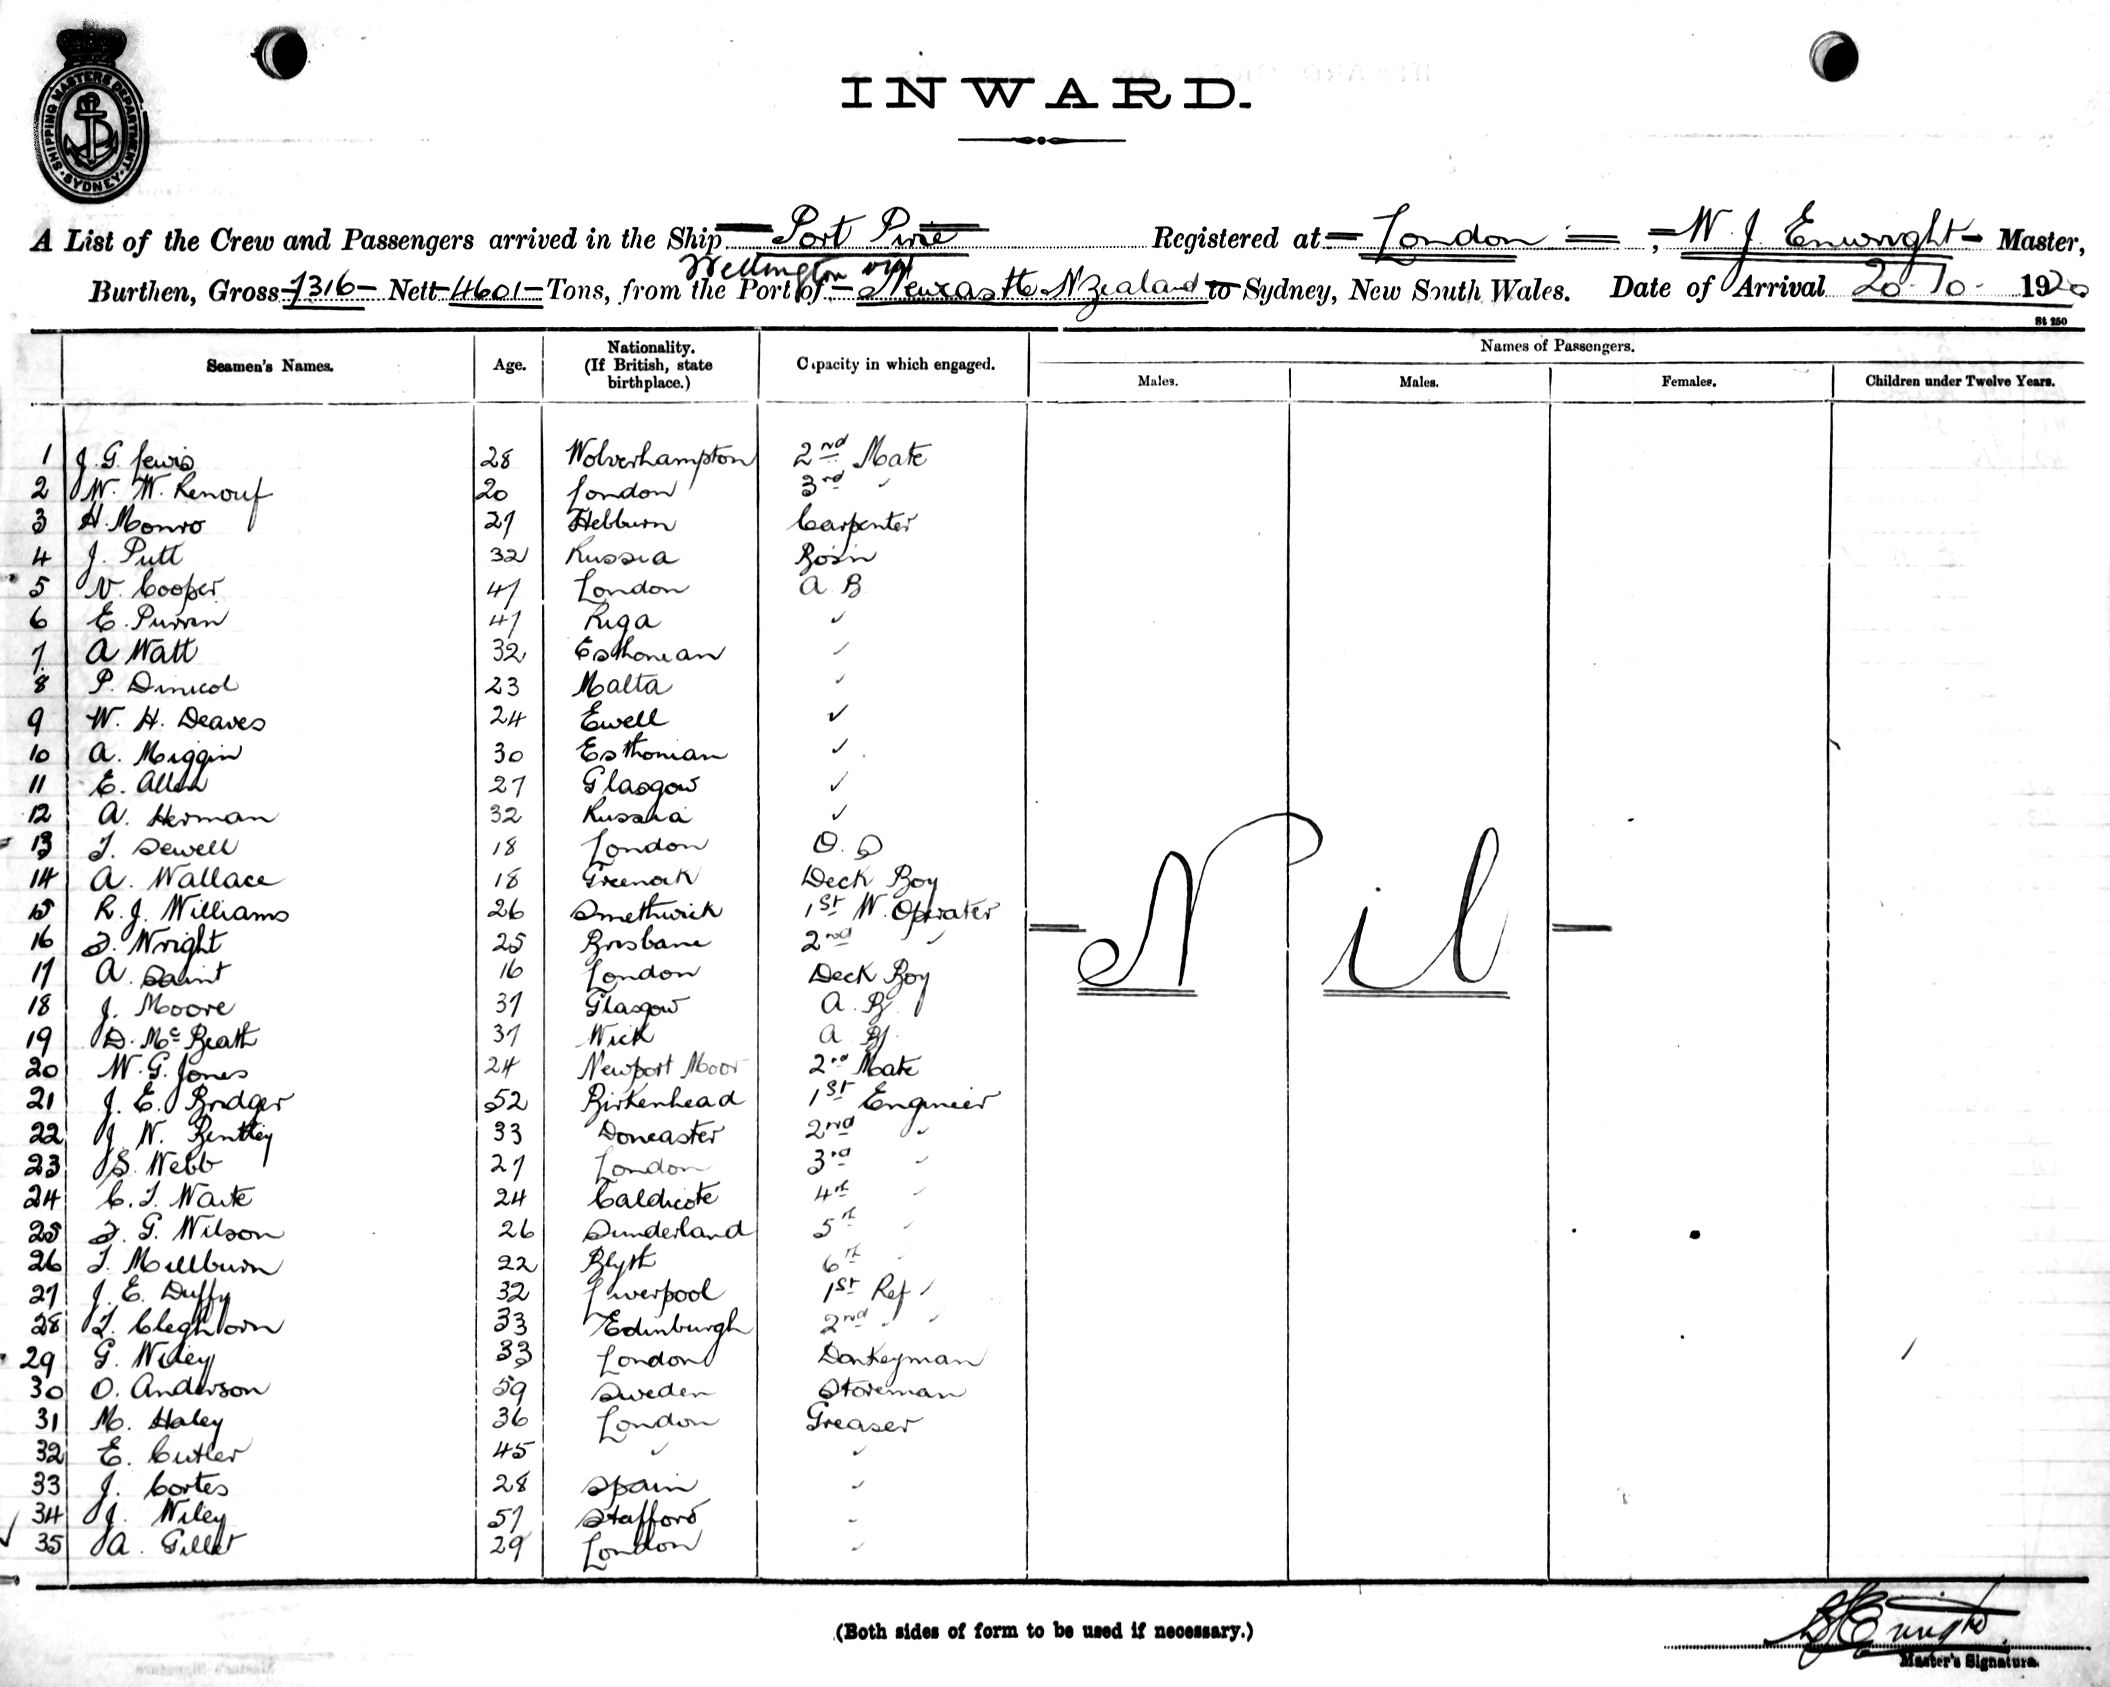 SHIPPING MASTERS DEPARTMENT
SYDNEY
INWARD.
A List of the Crew and Passengers arrived in the Ship Port Pirie Registered at London, W. J. Enwright Master,
Wellington via
Burthen, Gross 7316 Nett 4601 Tons, from the Port of Newcastle N Zealand to Sydney, New South Wales. Date of Arrival 20.10. 1920
St 250
Seamen's Names. Age. Nationality. (If British, state birthplace.) Capacity in which engaged. Names of Passengers.
Males. Males. Females. Children under Twelve Years.
1 J. G. Lewis 28 Wolverhampton 2nd Mate
2 W. W. Renouf 20 London 3rd "
3 H. Monro 27 Hebburn Carpenter
4 J. Putt 32 Russia Bosin
5 N. Cooper 47 London A B
6 E. Purren 47 Riga "
7 A Watt 32 Esthonian "
8 P. Dimcol 23 Malta "
9 W. H. Deaves 24 Ewell "
10 A. Miggin 30 Esthonian "
11 E. Allen 27 Glasgow "
12 A. Herman 32 Russia "
13 T. Sewell 18 London O. S
14 A. Wallace 18 Greenock Deck Boy
15 R. J. Williams 26 Smethwick 1st W. Operater
16 S. Wright 25 Brisbane 2nd "
17 A. Saint 16 London Deck Boy
18 J. Moore 37 Glasgow A. B
19 D. McBeath 37 Wick A B
20 W. G. Jones 24 Newport Moor 2nd Mate
21 J. E. Bridger 52 Birkenhead 1st Engineer
22 J. W. Bentley 33 Doncaster 2nd "
23 S. Webb 27 London 3rd "
24 C. T. Waite 24 Caldicote 4th "
25 S. G. Wilson 26 Sunderland 5th "
26 T. Millburn 22 Blyth 6th "
27 J. E. Duffy 32 Liverpool 1st Ref "
28 T. Cleghorn 33 Edinburgh 2nd " "
29 G. Wiley 33 London Donkeyman
30 O. Anderson 59 Sweden Storeman
31 M. Haley 36 London Greaser
32 E. Cutler 45 " "
33 J. Cortes 28 Spain "
34 J. Wiley 57 Stafford "
35 A. Gillet 29 London "
Nil
(Both sides of form to be used if necessary.)
Master's Signature.